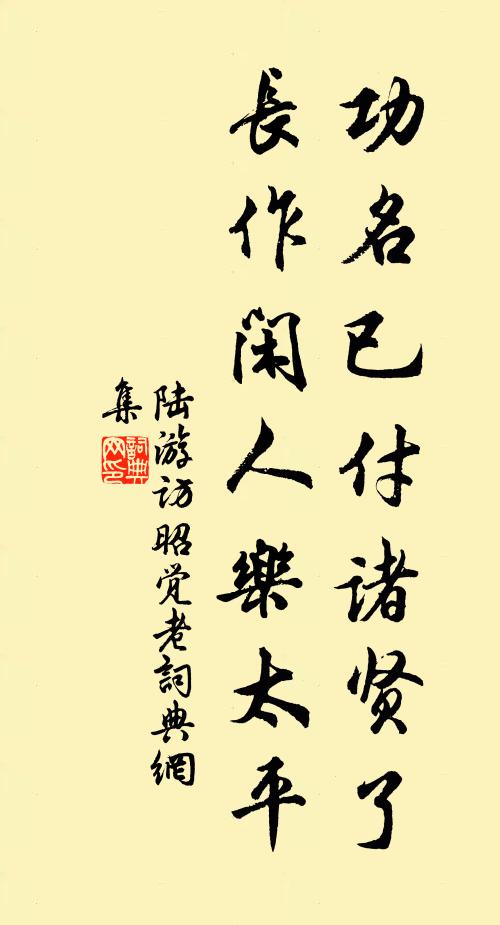 功名已付诸贤了
長作闲人樂太平
陆游访昭觉老詞典網
集
詞典网印